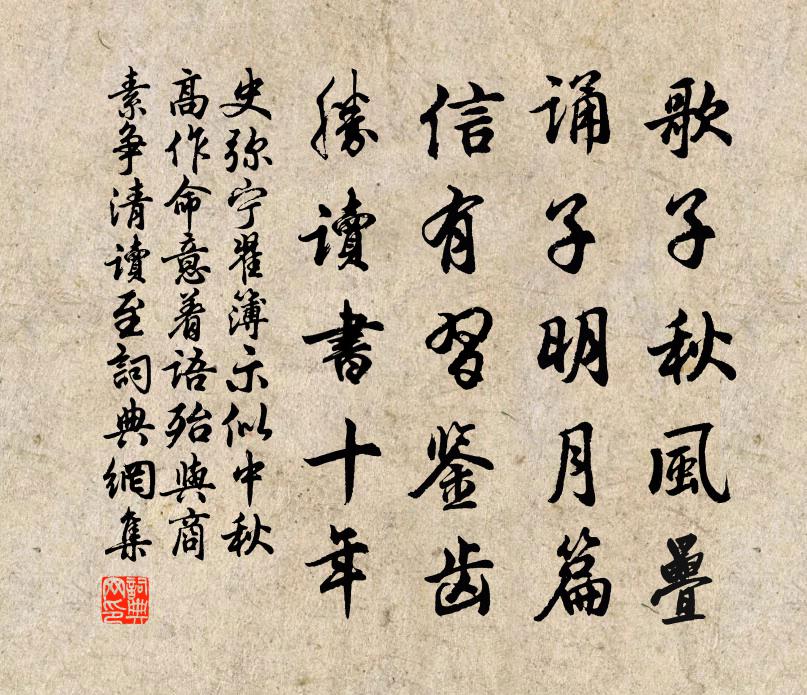 歌子秋風疊
诵子明月篇
信有習鉴齿
勝讀書十年
史弥宁翟簿示似中秋
高作命意着語殆與商
素争清讀至詞典網集
詞典网印